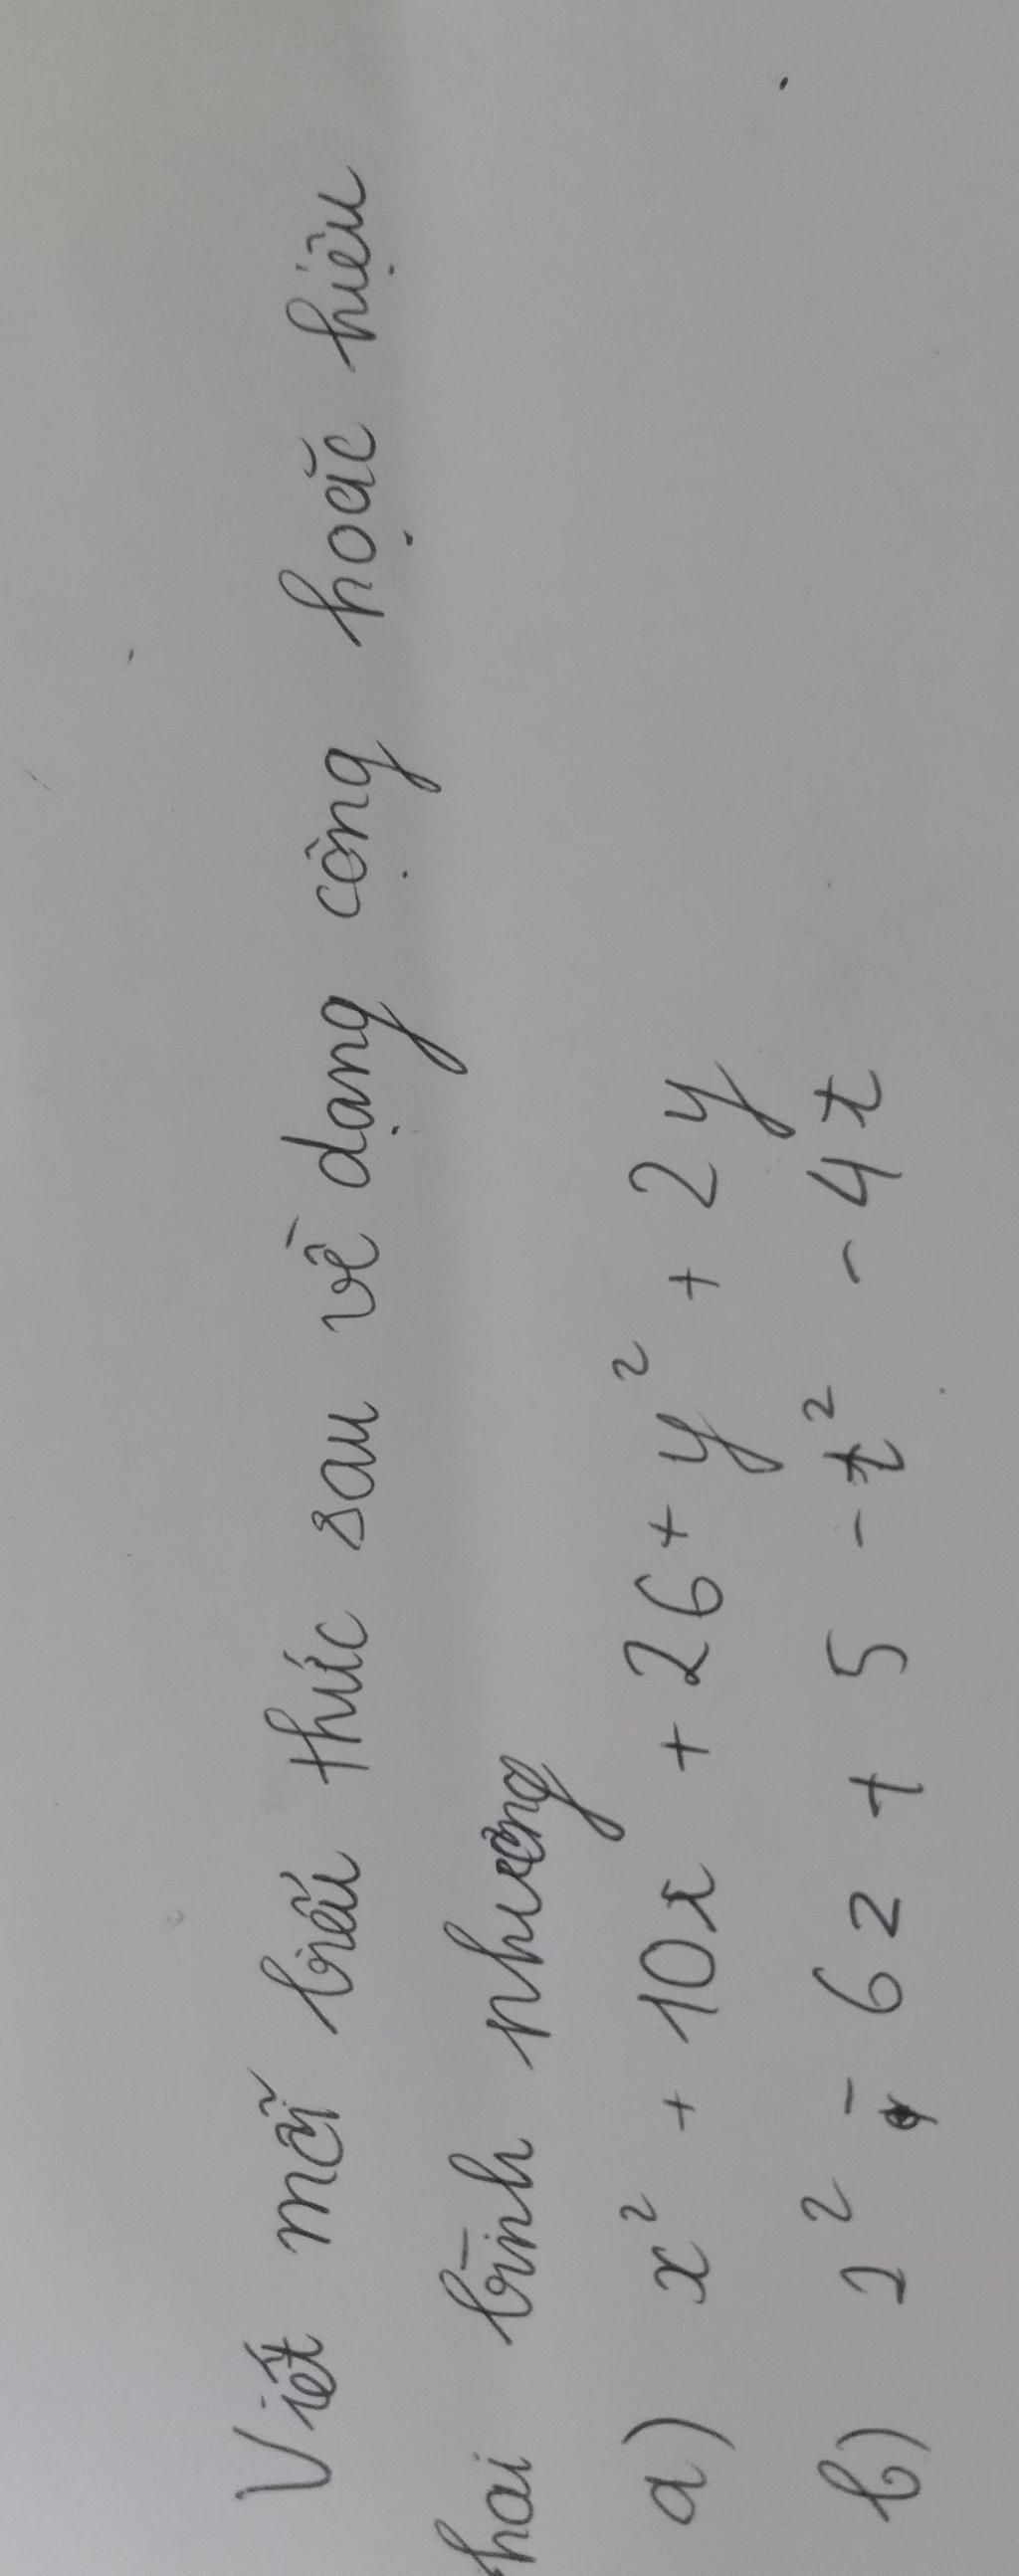 Viết mỗi biểu thức sau về dạng cộng hoặc hiệu
hai bình phương
a) x² + 10x + 26 + y² + 2y
b) z² - 6z + 5 - t² - 4t